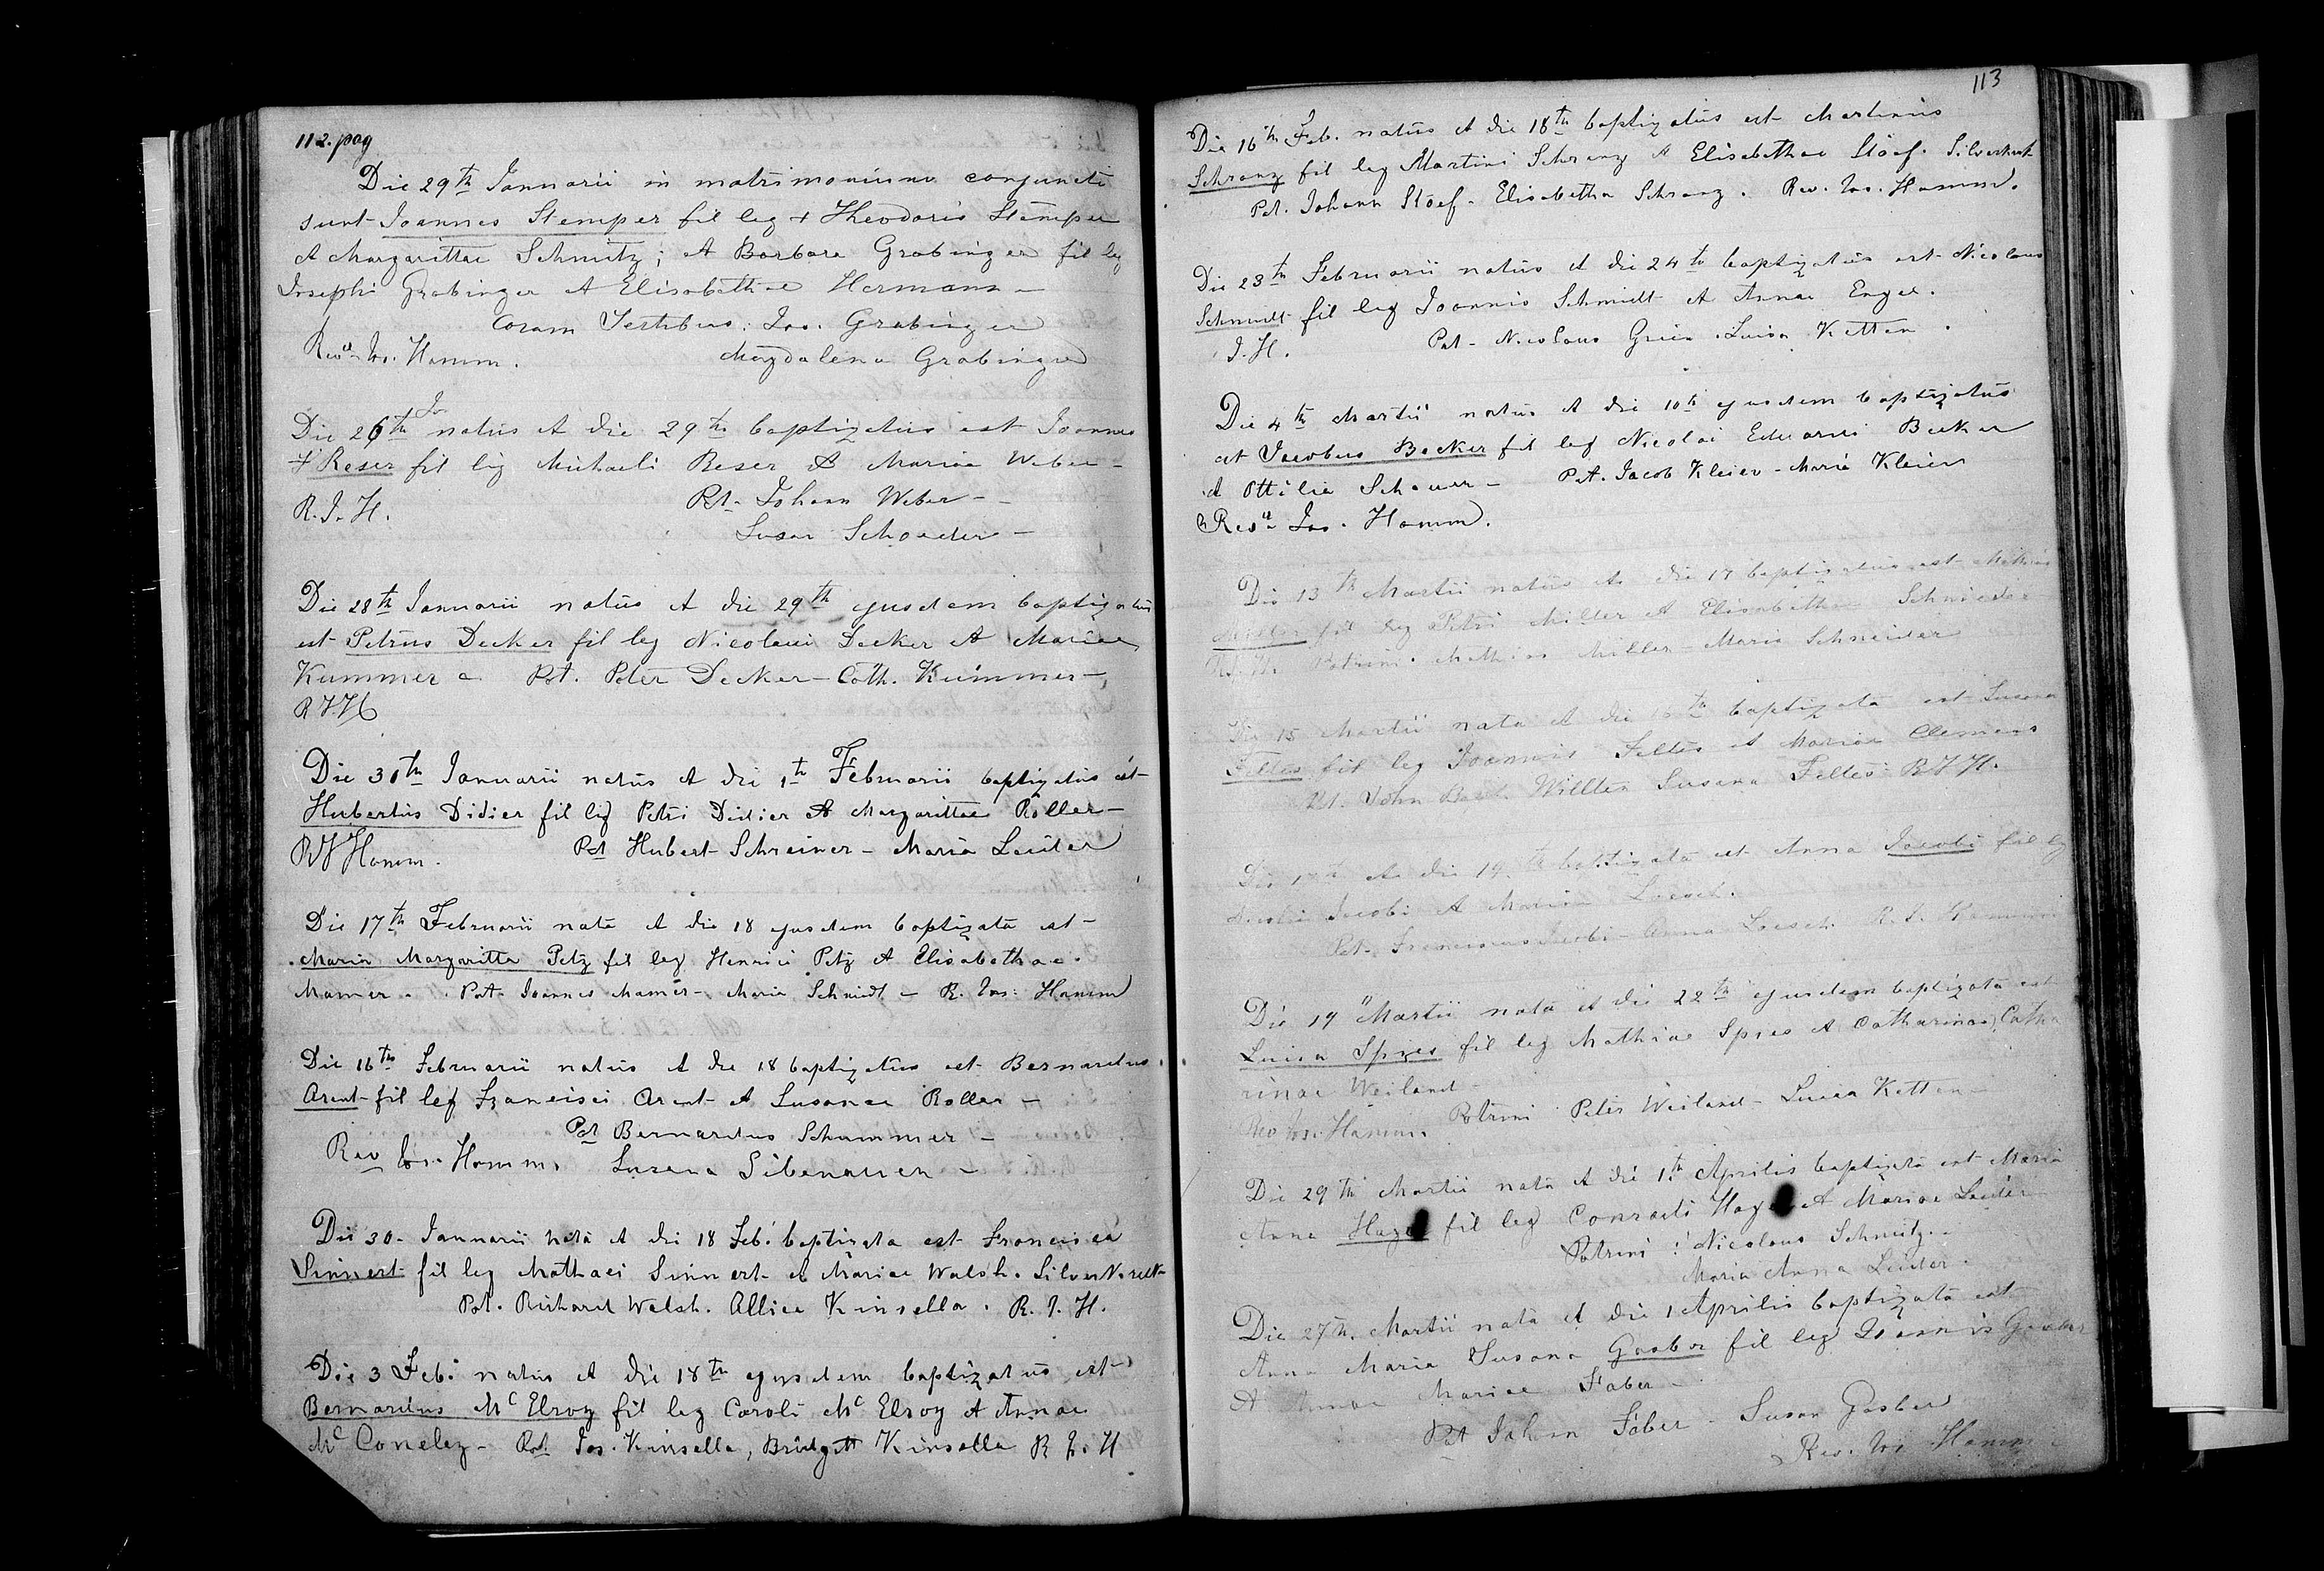 112. pag
Die 29th Januarii in matrimonium conjuncti
sunt Joannes Stemper fil leg + Theodoris Stemper
et Margarittae Schmitz; et Barbara Grabinger fil leg
Josephi Grabinger et Elisabethae Hermann -
Coram Testibus: Jos. Grabinger
Revd Jos. Hamm. Magdalena Grabinger
Die 26th Ja natus et die 29th baptizatus est Joannes
+ Reser fil leg Michaeli Reser et Mariae Weber -
R. J. H. Pat. Johann Weber -
Susan Schoeder -
Die 28th Januarii natus et die 29th ejusdem baptizatus
est Petrus Decker fil leg Nicolaui Decker et Mariae
Kummer - Pat. Peter Decker - Cath. Kümmer -
R J. H
Die 30th Januarii natus et die 1th Februarii baptizatus est
Hubertus Didier fil leg Petri Didier et Margarittae Roller -
R J Hamm. Pat Hubert Schreiner - Maria Leuter
Die 17th Februarii nata et die 18 ejusdem baptizata est
Maria Margaritta Petz fil leg Henrici Petz et Elisabethae
Mamer. Pat. Joannes Mamer - Maria Schmidt - R. Jos: Hamm
Die 16th Februarii natus et die 18 baptizatus est Bernardus
Arent fil leg Francisci Arent et Susanae Roller -
Pat Bernardus Schummer -
Rev Jos. Hamm. Susana Sibenauen -
Die 30 - Januarii nata et die 18 Feb. baptizata est Francisca
Sinnert fil leg Mathaei Sinnert et Mariae Walsh. Silver
Pat. Richard Walsh. Allice Kinsella. R. J. H.
Die 3 Feb. natus et die 18th ejusdem baptizatus est
Bernardus Mc Elroy fil leg Caroli Mc Elroy et Annae
Mc Coneley - Pat Jos. Kinsella, Bridgett Kinsella R J. H
113
Die 16th Feb. natus et die 18th baptizatus est Martinus
Schranz fil leg Martini Schranz et Elisabethae Stoef. Silver
Pat. Johann Stoef. Elisabetha Schranz. Rev. Jos. Hamm.
Die 23th Februarii natus et die 24th baptizatus est Nicolaus
Schmidt fil leg Joannis Schmidt et Annae Engel.
J. H. Pat - Nicolaus Luisa Ketten.
Die 4th Martii natus et die 10th ejusdem baptizatus
est Jacobus Becker fil leg Nicolai Eduardi Becker
et Ottilie Schauer - Pat. Jacob Kleier - Maria Kleier
Revd Jos. Hamm.
Die 13th Martii natus et die 17 baptizatus est Mathias
Miller fil leg Petri Miller et Elisabethae Schneider
R. J. H. Patrini. Mathias Miller - Maria Schneider
Die 15 Martii nata et die 16th baptizata est Susana
Feltes fil leg Joannis Feltes et Mariae Clemens
Pat. John Willten Susana Feltes R J H.
Die et die 19th baptizata est Anna Jacobi fil leg
Nicolai Jacobi et Mariae Loesch.
Pat. Franciscus Jacobi - Anna Loesch. R. J. Hamm
Die 19 Martii nata et die 22th ejusdem baptizata est
Luisa Spies fil leg Mathiae Spies et Catharinae, Catha
rinae Weiland -
Rev Jos. Hamm. Patrini Peter Weiland - Luisa Ketten -
Die 29th Martii nata et die 1th Aprilis baptizata est Maria
Anna Hagen fil leg Conradi Hagen et Mariae Leuter
Patrini: Nicolaus Schmitz -
Maria Anna Leuter.
Die 27th. Martii nata et die 1 Aprilis baptizata est
Anna Maria Susana Gasber fil leg Joannis Gasber
et Annae Mariae Faber -
Pat Johan Faber - Susan Gasber
Rev. Jos Hamm